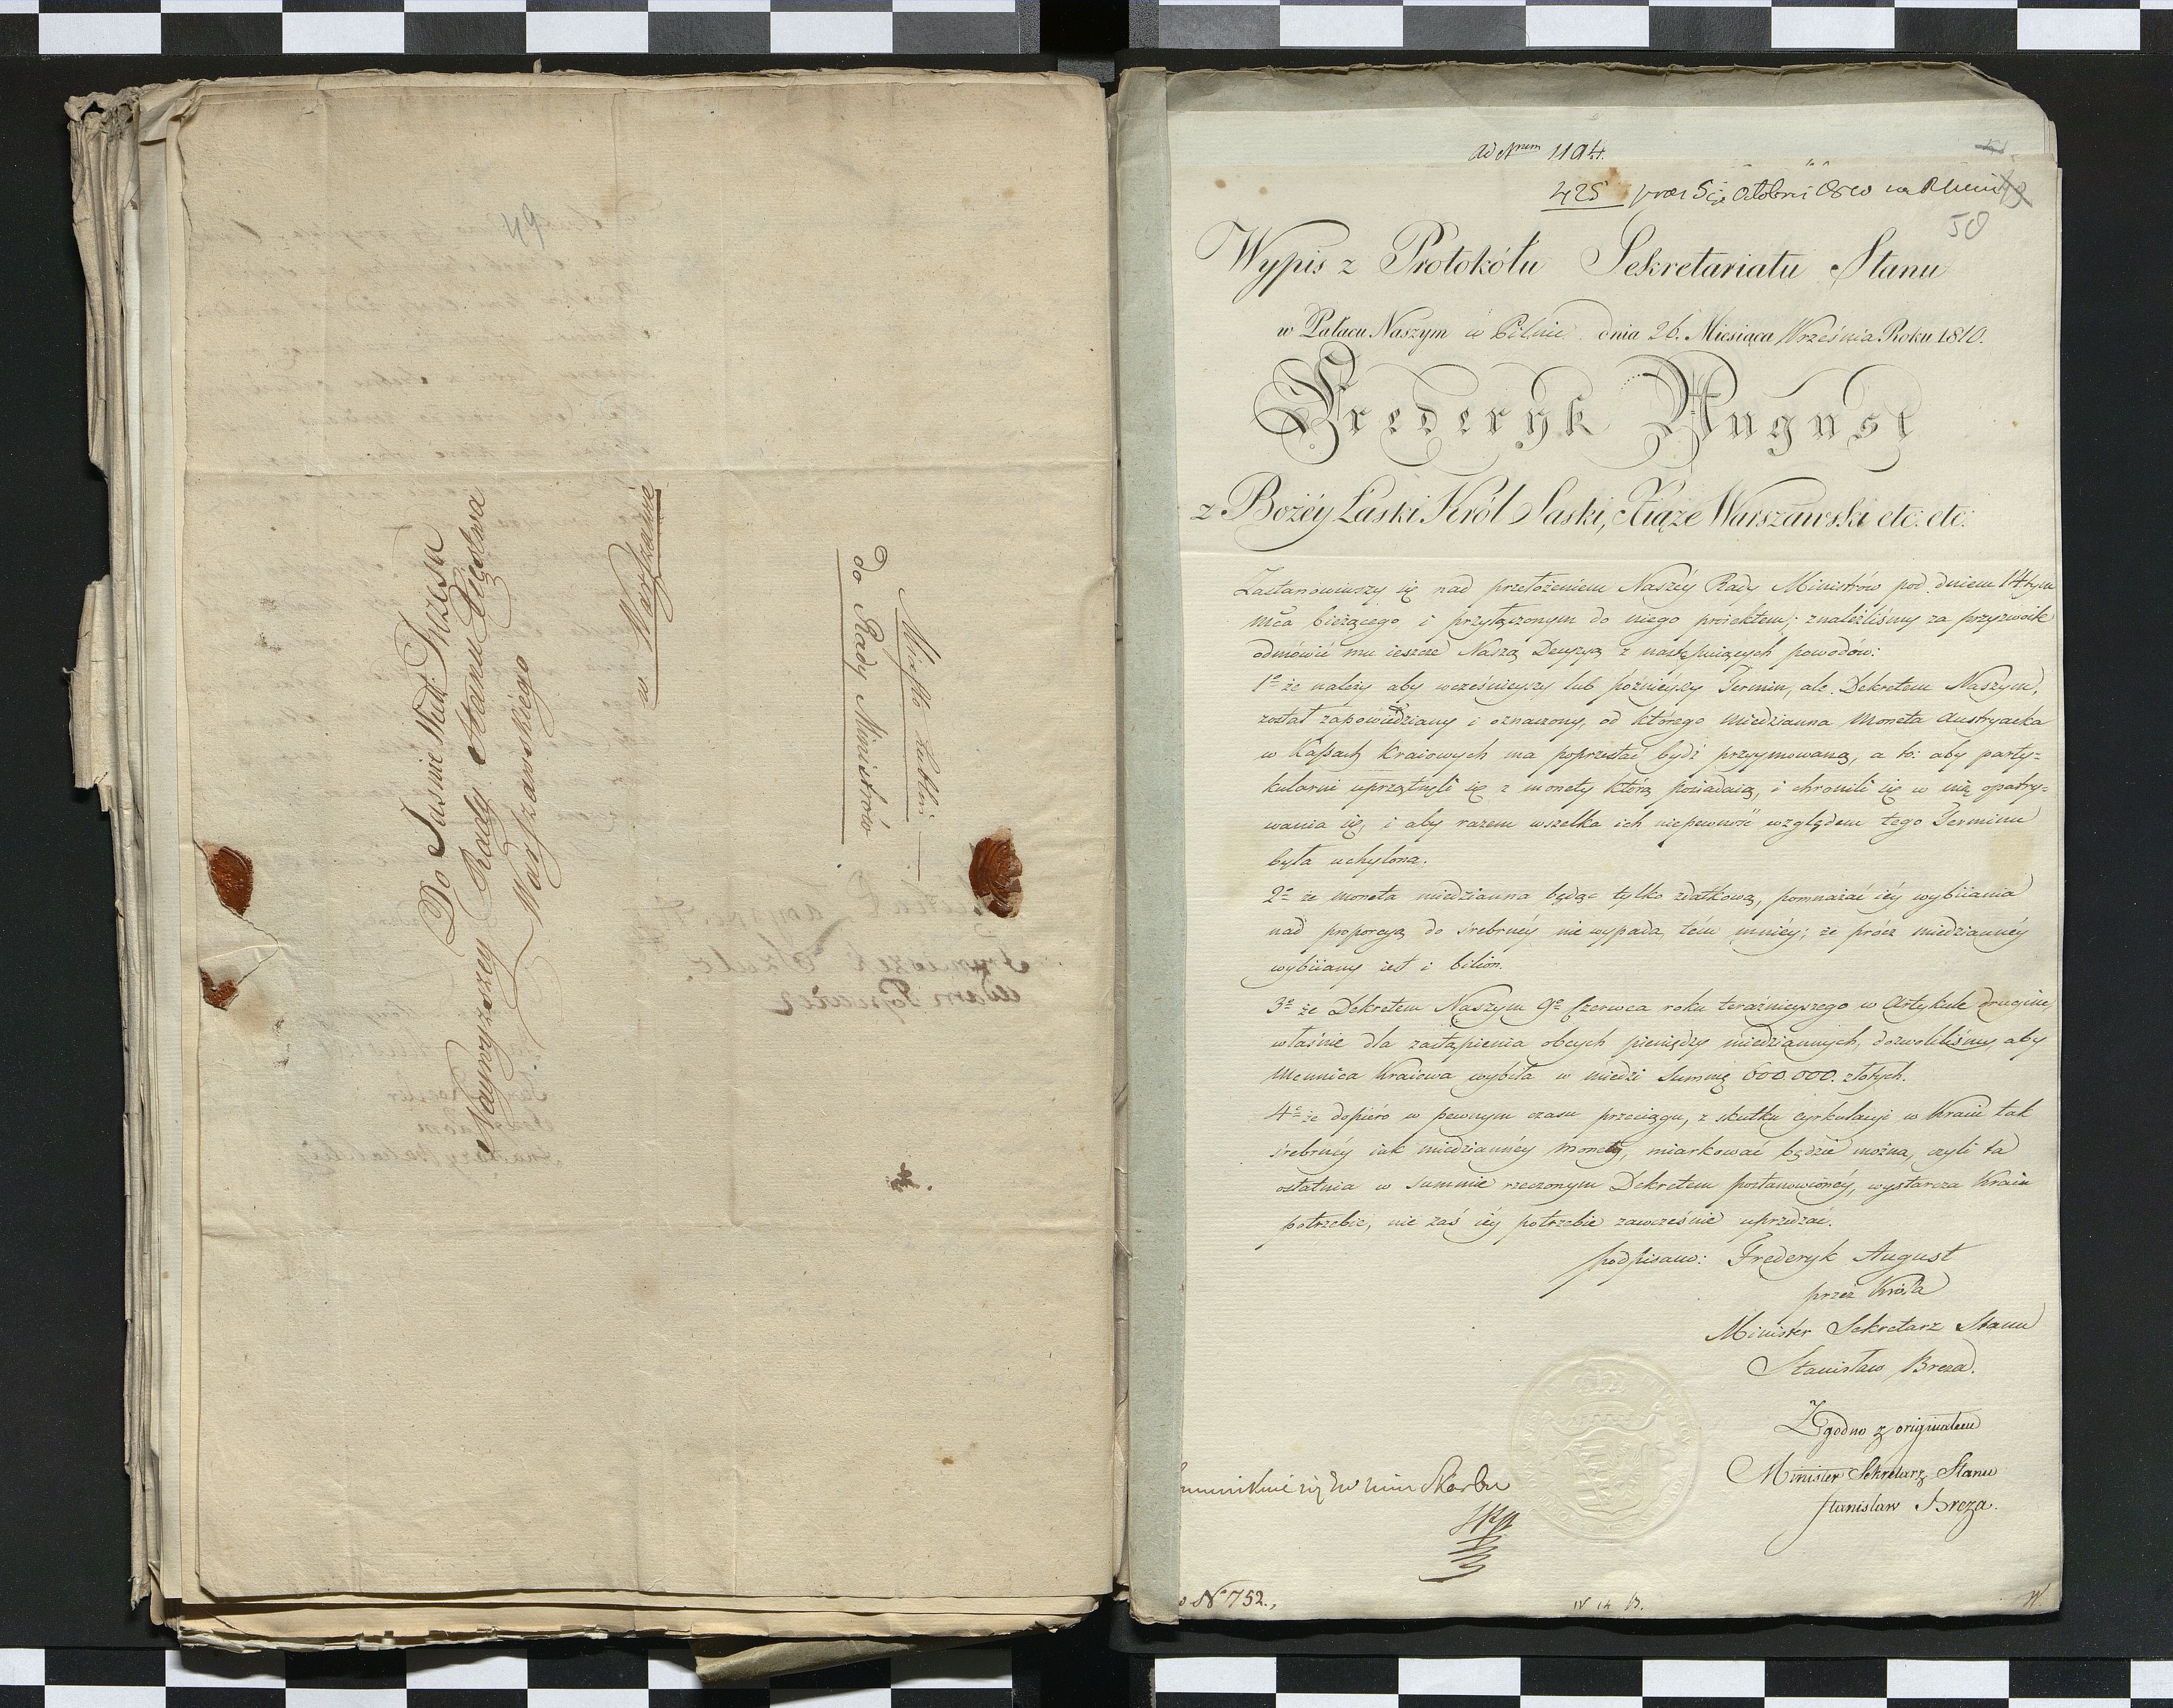 49
Do Jaśnie Wiel: Prezesa
Naywyższey Rady Stanu Xięstwa
Warszawskiego
w Warszawie
Miasto Lublin
do Rady Ministrów
ad Nrum 1194.
425
50
Wypis z Protokółu Sekretariatu Stanu
w Pałacu Naszym w Pilnic dnia 26. Miesiąca Września Roku 1810.
Frederyk August
z Bożéy Łaski Król Saski, Xiąże Warszawski etc. etc.
Zastanowiwszy się nad przełożeniem Naszéy Rady Ministrów pod dniem 14tym
mca bieżącego i przyłączonym do niego proiektem; znaleźliśmy za przyzwoite
odmówić mu ieszcze Naszą Decyzyą z następuiących powodów:
1o że należy aby wcześnieyszy lub późnieyszy Termin, ale Dekretem Naszym,
został zapowiedziany i oznaczony, od którego miedzianna Moneta Austryacka
w Kassach Kraiowych ma poprzestać bydź przyymowaną, a to: aby party-
kularni uprzątnęli się z monety którą posiadaią, i chronili się w nią opatry-
wania się, i aby razem wszelka ich niepewność względem tego Terminu
była uchylona.
2o że moneta miedzianna będąc tylko zdatkową, pomnażać iéy wybiiania
nad proporcyą do śrebrnéy nie wypada, tém mniéy; że prócz miedziannéy
wybiiany iest i bilion.
3o że Dekretem Naszym 9o Czerwca roku teraźnieyszego w Artykule drugim,
właśnie dla zastąpienia obcych pieniędzy miedziannych, dozwoliliśmy, aby
Mennica Kraiowa wybiła w miedzi Summę 600.000. złotych.
4o że dopiéro w pewnym czasu przeciągu, z skutku cyrkulacyi w Kraiu tak
śrebrnéy iak miedziannéy monety, miarkować będzie można, czyli ta
ostatnia w summie rzeczonym Dekretem postanowionéy, wystarcza Kraiu
potrzebie, nie zaś iéy potrzebie zawcześnie uprzedzać.
podpisano: Frederyk August
przez Króla
Minister Sekretarz Stanu
Stanisław Breza.
Zgodno z originałem
Minister Sekretarz Stanu
Stanisław Breza.
Skarbu
No 752.